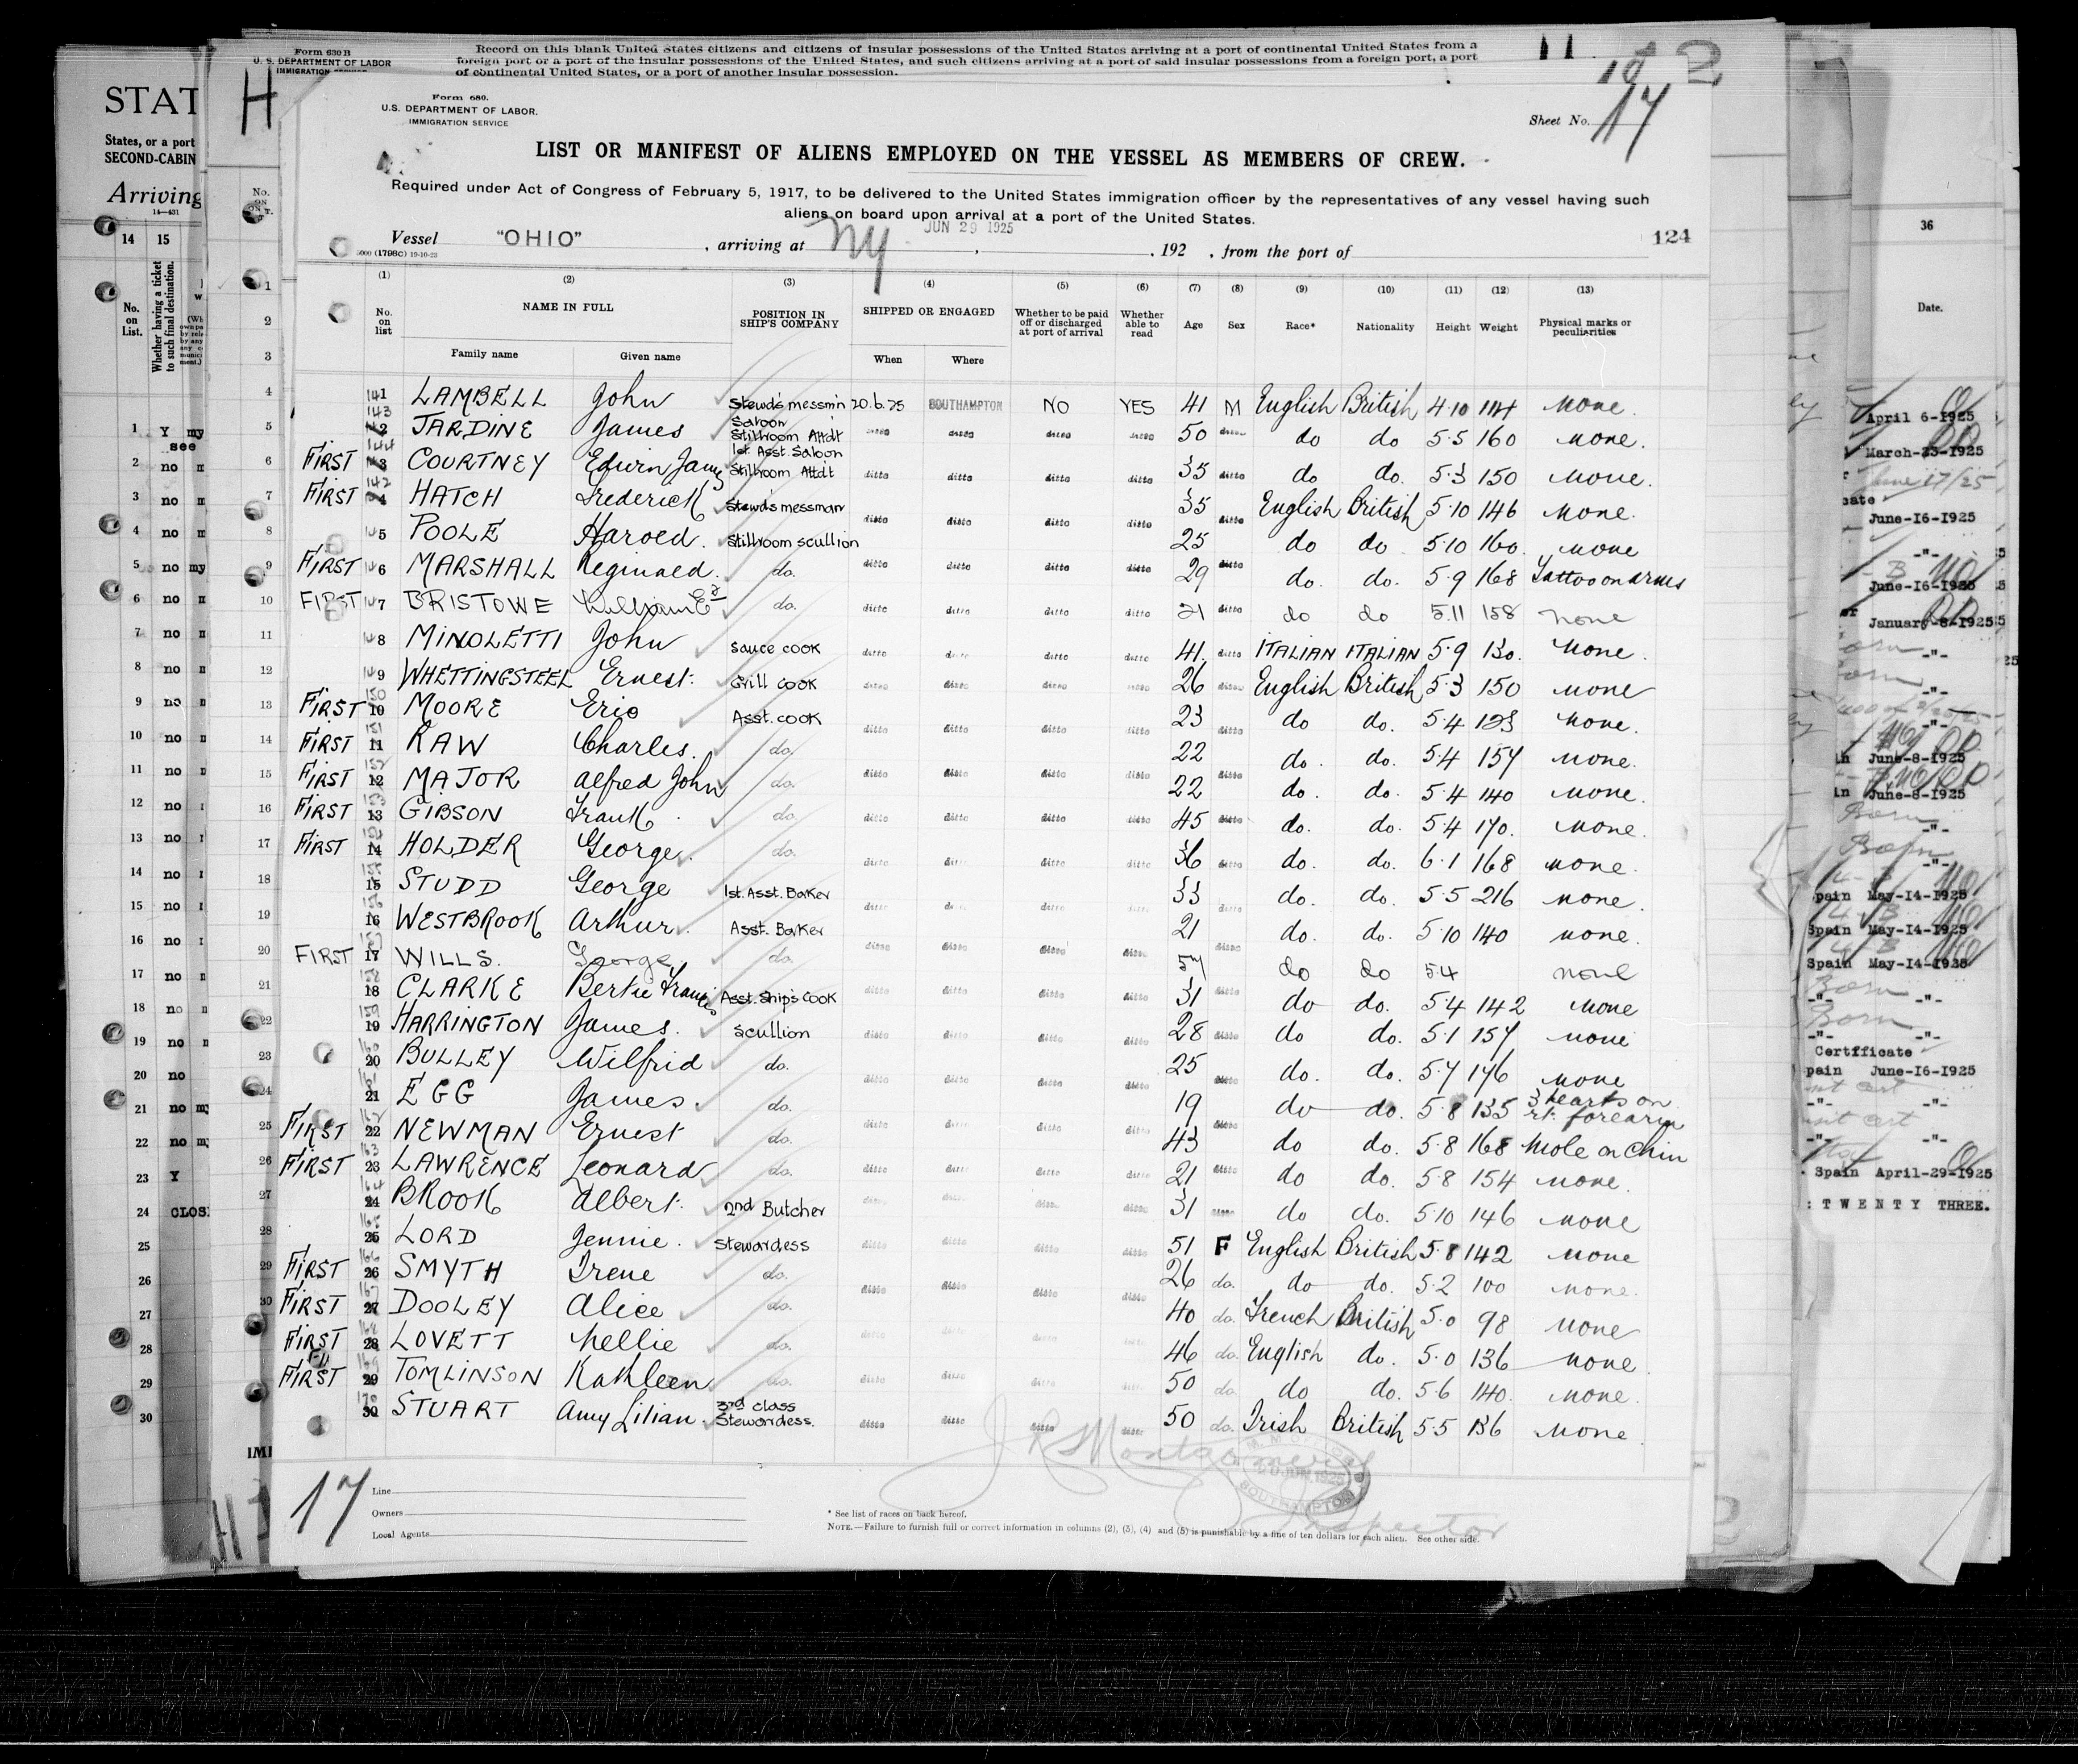 Form 630 B
U. S. DEPARTMENT OF LABOR
IMMIGRATION SERVICE
Record on this blank United States citizens and citizens of insular possessions of the United States arriving at a port of continental United States from a
foreign port or a port of the insular possessions of the United States, and such citizens arriving at a port of said insular possessions from a foreign port, a port
of continental United States, or a port of another insular possession.
Form 680.
U.S. DEPARTMENT OF LABOR.
IMMIGRATION SERVICE
Sheet No. 17
LIST OR MANIFEST OF ALIENS EMPLOYED ON THE VESSEL AS MEMBERS OF CREW.
Required under Act of Congress of February 5, 1917, to be delivered to the United States immigration officer by the representatives of any vessel having such
aliens on board upon arrival at a port of the United States.
Vessel "OHIO", arriving at NY JUN 29 1925, 192 , from the port of 124
5000 (1798C) 19-10-23
(1) (2) (3) (4) (5) (6) (7) (8) (9) (10) (11) (12) (13)
No. on list NAME IN FULL POSITION IN SHIP'S COMPANY SHIPPED OR ENGAGED Whether to be paid off or discharged at port of arrival Whether able to read Age Sex Race* Nationality Height Weight Physical marks or peculiarities
Family name Given name When Where
141 LAMBELL John Stewds messm'n 20.6.25 SOUTHAMPTON NO YES 41 M English British 4.10 114 none.
143 JARDINE James Saloon Stillroom Attdt ditto ditto ditto ditto 50 ditto do do 5.5 160 none.
FIRST 144 COURTNEY Edwin James 1st. Asst. Saloon Stillroom Attdt ditto ditto ditto ditto 35 ditto do do. 5.3 150 none.
FIRST 142 HATCH Frederick Stewds messman ditto ditto ditto ditto 35 ditto English British 5.10 146 none.
5 POOLE Harold. Stillroom scullion ditto ditto ditto ditto 25 ditto do do 5.10 160. none
FIRST 6 MARSHALL Reginald. do. ditto ditto ditto ditto 29 ditto do. do. 5.9 168 Tattoo on arms
FIRST 7 BRISTOWE William do. ditto ditto ditto ditto 21 ditto do do 5.11 158 none
8 MINOLETTI John Sauce cook ditto ditto ditto ditto 41. ditto ITALIAN ITALIAN 5.9 130. none.
9 WHETTINGSTEEL Ernest. Grill cook ditto ditto ditto ditto 26 ditto English British 5.3 150 none
FIRST 10 MOORE Eric Asst. cook ditto ditto ditto ditto 23 ditto do do. 5.4 123 none.
FIRST 11 RAW Charles. do. 22 do. do. 5.4 157 none.
FIRST 12 MAJOR Alfred John do. ditto ditto ditto ditto 22 ditto do. do. 5.4 140 none.
FIRST 13 GIBSON Frank. do. ditto ditto ditto ditto 45 ditto do. do. 5.4 170. none.
FIRST 14 HOLDER George. do. ditto ditto ditto ditto 36 ditto do. do. 6.1 168 none.
15 STUDD George 1st. Asst. Baker 33 do. do. 5.5 216 none.
16 WESTBROOK Arthur. Asst. Baker ditto ditto ditto ditto 21 ditto do. do. 5.10 140 none.
FIRST 17 WILLS. George do. ditto ditto ditto ditto 57 ditto do do 5.4 none
18 CLARKE Bertie Francis Asst. Ship's Cook ditto ditto ditto ditto 31 ditto do do. 5.4 142 none
19 HARRINGTON James. Scullion ditto ditto ditto ditto 28 ditto do do. 5.1 157 none
20 BULLEY Wilfrid do. 25 do. do. 5.7 176 none
21 EGG James. do. ditto ditto ditto ditto 19 ditto do do. 5.8 135 3 hearts on rt. forearm
FIRST 22 NEWMAN Ernest do. ditto ditto ditto ditto 43 ditto do do. 5.8 168 mole on chin
FIRST 23 LAWRENCE Leonard do. ditto ditto ditto ditto 21 ditto do do. 5.8 154 none.
24 BROOK Albert. 2nd Butcher ditto ditto ditto ditto 31 ditto do do. 5.10 146 none
25 LORD Jennie. Stewardess ditto ditto ditto ditto 51 F English British 5.8 142 none
FIRST 26 SMYTH Irene do. ditto ditto ditto ditto 26 do. do do. 5.2 100 none.
FIRST 27 DOOLEY Alice do. 40 do. French British 5.0 98 none
FIRST 28 LOVETT Nellie do. ditto ditto ditto ditto 46 do. English do. 5.0 136 none.
FIRST 29 TOMLINSON Kathleen do. ditto ditto ditto ditto 50 do do do. 5.6 140. none.
170 30 STUART Amy Lilian. 3rd class Stewardess. ditto ditto ditto ditto 50 do. Irish British 5.5 136 none.
J R Montgomery
Inspector
17
Line
Owners
Local Agents
* See list of races on back hereof.
NOTE.—Failure to furnish full or correct information in columns (2), (3), (4) and (5) is punishable by a fine of ten dollars for each alien. See other side.
STAT
States, or a port
SECOND-CABIN
Arriving
14 15
No. on List.
Whether having a ticket to such final destination.
1 Y my
see
2 no
3 no
4 no
5 no my
6 no
7 no
8 no
9 no
10 no
11 no
12 no
13 no
14 no
15 no
16 no
17 no
18 no
19 no
20 no
21 no my
22 no my
23 Y
24 CLOS
25
26
27
28
29
30
36
Date.
April 6-1925
March-23-1925
June 17/25
June-16-1925
-"-
June-16-1925
January-8-1925
-"-
-"-
-"-
June-8-1925
June-8-1925
-"-
-"-
pain May-14-1925
Spain May-14-1925
Spain May-14-1925
-"- -"-
-"- -"-
Certificate
pain June-16-1925
-"- -"-
-"- -"-
Spain April-29-1925
: TWENTY THREE.